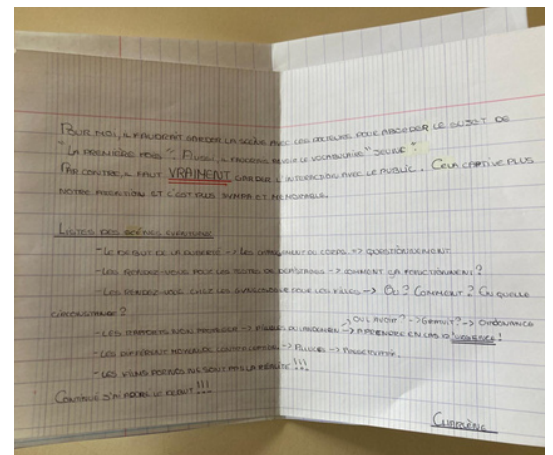 POUR MOI, IL FAUDRAIT GARDER LA SCÈNE AVEC LES DOCTEURS POUR ABORDER LE SUJET DE
"LA PREMIÈRE FOIS". AUSSI, IL FAUDRAIT REVOIR LE VOCABULAIRE "JEUNE".
PAR CONTRE, IL FAUT VRAIMENT GARDER L'INTERACTION AVEC LE PUBLIC. CELA CAPTIVE PLUS
NOTRE ATTENTION ET C'EST PLUS SYMPA ET MÉMORABLE.
LISTES DES SCÈNES
- LE DÉBUT DE LA PUBERTÉ -> LES CHANGEMENT DU CORPS -> QUESTIONNEMENT
- LES RENDEZ-VOUS POUR LES TESTES DE DÉPISTAGES -> COMMENT ÇA FONCTIONNENT ?
- LES RENDEZ-VOUS CHEZ LES GYNÉCOLOGUE POUR LES FILLES -> OÙ ? COMMENT ? EN QUELLE
CIRCONSTANCE ?
OÙ L'AVOIR ? -> GRATUIT ? -> ORDONNANCE
- LES RAPPORTS NON PROTÉGÉ -> PILULES DU LENDEMAIN -> À PRENDRE EN CAS D'URGENCE !
- LES DIFFÉRENT MOYEN DE CONTRACEPTION -> PILULES -> PRÉSERVATIF.
- LES FILMS PORNOS NE SONT PAS LA RÉALITÉ !!!
CONTINUÉ J'AI ADORÉ LE DÉBUT !!!